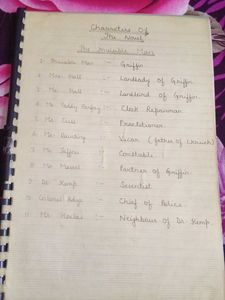 Characters Of
The Novel
The Invisible Man
1. Invisible Man :- Griffin.
2. Mrs. Hall :- Landlady of Griffin
3. Mr. Hall :- Landlord of Griffin.
4. Mr. Teddy Henfrey :- Clock Repairman
5. Mr. Cuss :- Practitioner.
6. Mr. Bunting :- Vicar (father of church)
7. Mr. Jaffers :- Constable
8. Mr. Marvel :- Partner of Griffin
9. Dr. Kemp :- Scientist
10. Colonel Adye :- Chief of Police
11. Mr. Heelas :- Neighbour of Dr. Kemp.